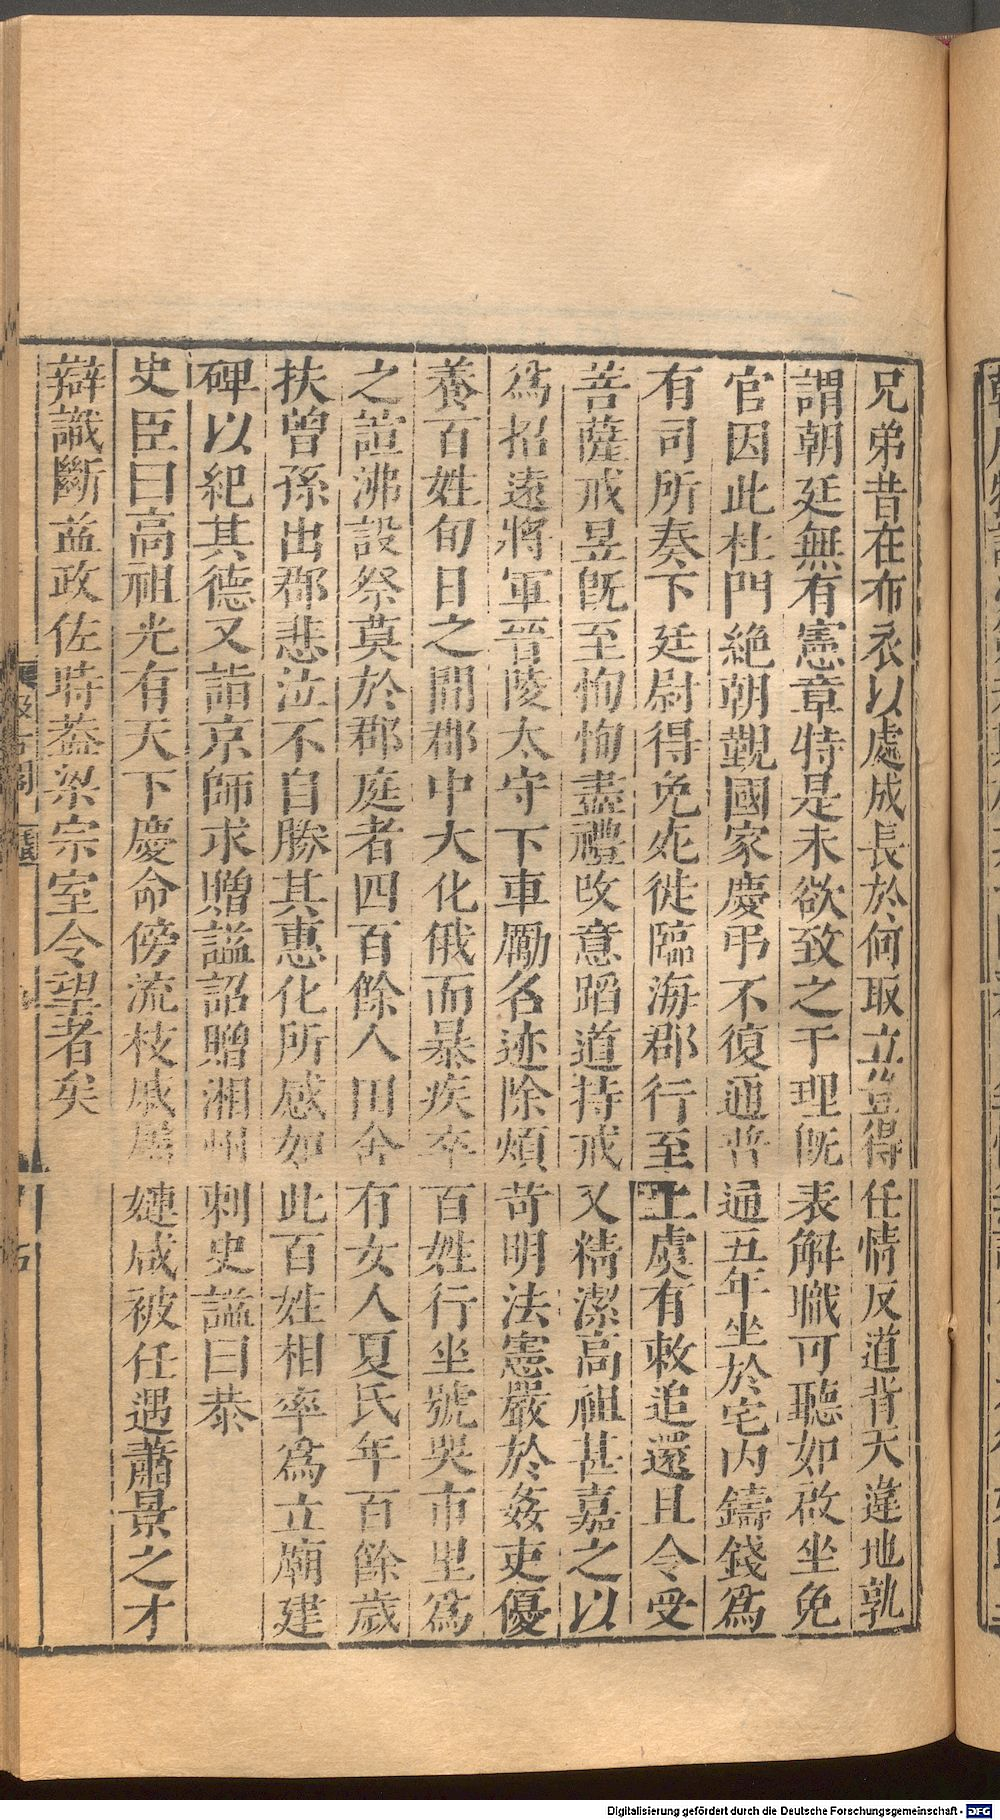 兄弟昔在布衣以處成長於何取立豈得任情反道背天違地孰
謂朝廷無有憲章特是未欲致之于理既表解職可聽如啟坐免
官因此杜門絶朝覲國家慶弔不復通普通五年坐於宅内鑄錢為
有司所奏下廷尉得免死徙臨海郡行至上虞有敕追還且令受
菩薩戒昱既至恂恂盡禮改意蹈道持戒又精潔高祖甚嘉之以
為招遠將軍晉陵太守下車勵名迹除煩苛明法憲嚴於姦吏優
養百姓旬日之間郡中大化俄而暴疾卒百姓行坐號哭市里為
之諠沸設祭奠於郡庭者四百餘人田舍有女人夏氏年百餘歲
扶曾孫出郡悲泣不自勝其惠化所感如此百姓相率為立廟建
碑以紀其德又詣京師求贈謚詔贈湘州刺史謚曰恭
史臣曰高祖光有天下慶命傍流枝戚屬𡟎咸被任遇蕭景之才
辯識斷益政佐時蓋梁宗室令望者矣
Digitalisierung gefördert durch die Deutsche Forschungsgemeinschaft - DFG